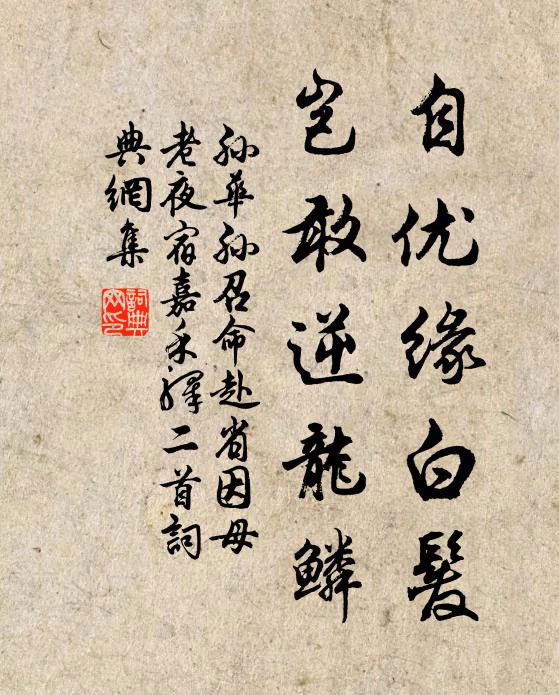 自优缘白髮
岂敢逆龍鳞
孙華孙召命赴省因母
老夜宿嘉禾驿二首詞
典網集
詞典網印